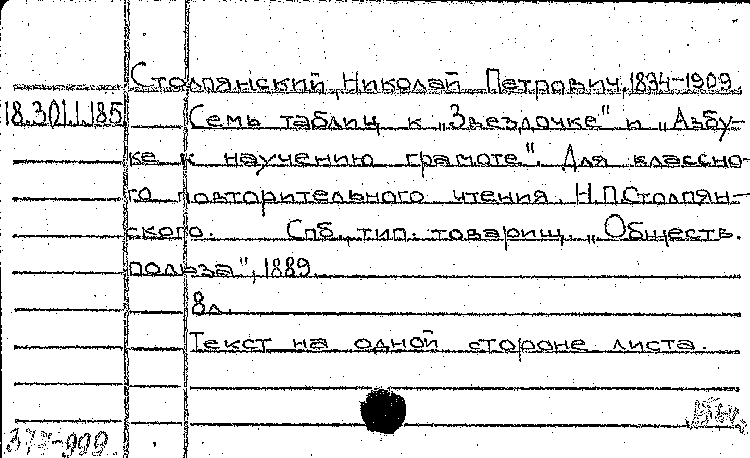 Столпянский, Николай Петрович, 1834-1909
18.301.1.185
Семь таблиц к „Звездочке" и „Азбу-
ке к научению грамоте". Для классно-
го повторительного чтения Н.П.Столпян-
ского. Спб., тип. товарищ. „Обществ.
польза", 1889.
8л.
Текст на одной стороне листа.
377-999.